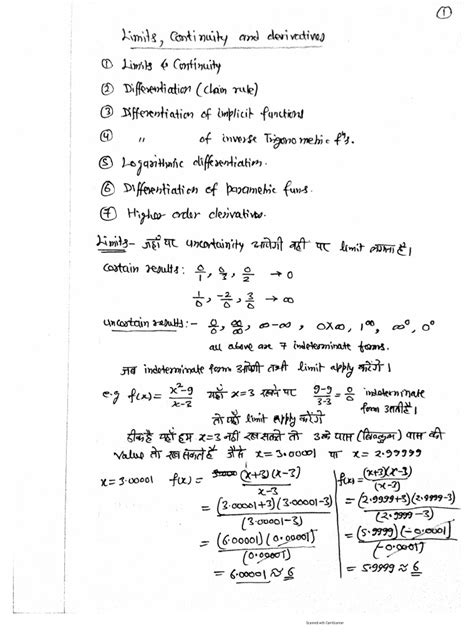 ①
Limits, Continuity and derivatives
① Limits & Continuity
② Differentiation (Chain rule)
③ Differentiation of implicit functions
④ " of inverse Trigonometric fⁿs.
⑤ Logarithmic differentiation.
⑥ Differentiation of parametric funs.
⑦ Higher order derivatives.
Limits- जहाँ पर uncertainity आयेगी वहाँ पर limit लगता है।
Certain results: 0/1, 0/3, 0/2 → 0
1/0, -2/0, 3/0 → ∞
uncertain results:- 0/0, ∞/∞, ∞-∞, 0×∞, 1^∞, ∞⁰, 0⁰
all above are 7 indeterminate forms.
जब indeterminate form आयेगी तभी limit apply करेंगे।
e.g f(x) = (x²-9)/(x-3) यहाँ x=3 रखने पर (9-9)/(3-3) = 0/0 indeterminate
form आती है।
तो यहाँ limit apply करेंगे
ठीक है यहाँ हम x=3 नहीं रख सकते तो 3 के पास (बिल्कुल) पास की
value तो रख सकते हैं जैसे x=3.00001 या x=2.99999
x=3.00001 f(x) = (x+3)(x-3)/(x-3)
= (3.00001+3)(3.00001-3)/(3.00001-3)
= (6.00001)(0.00001)/(0.00001)
= 6.00001 ≈ 6
f(x) = (x+3)(x-3)/(x-3)
= (2.9999+3)(2.9999-3)/(2.9999-3)
= (5.9999)(-0.0001)/(-0.0001)
= 5.9999 ≈ 6
Scanned with CamScanner